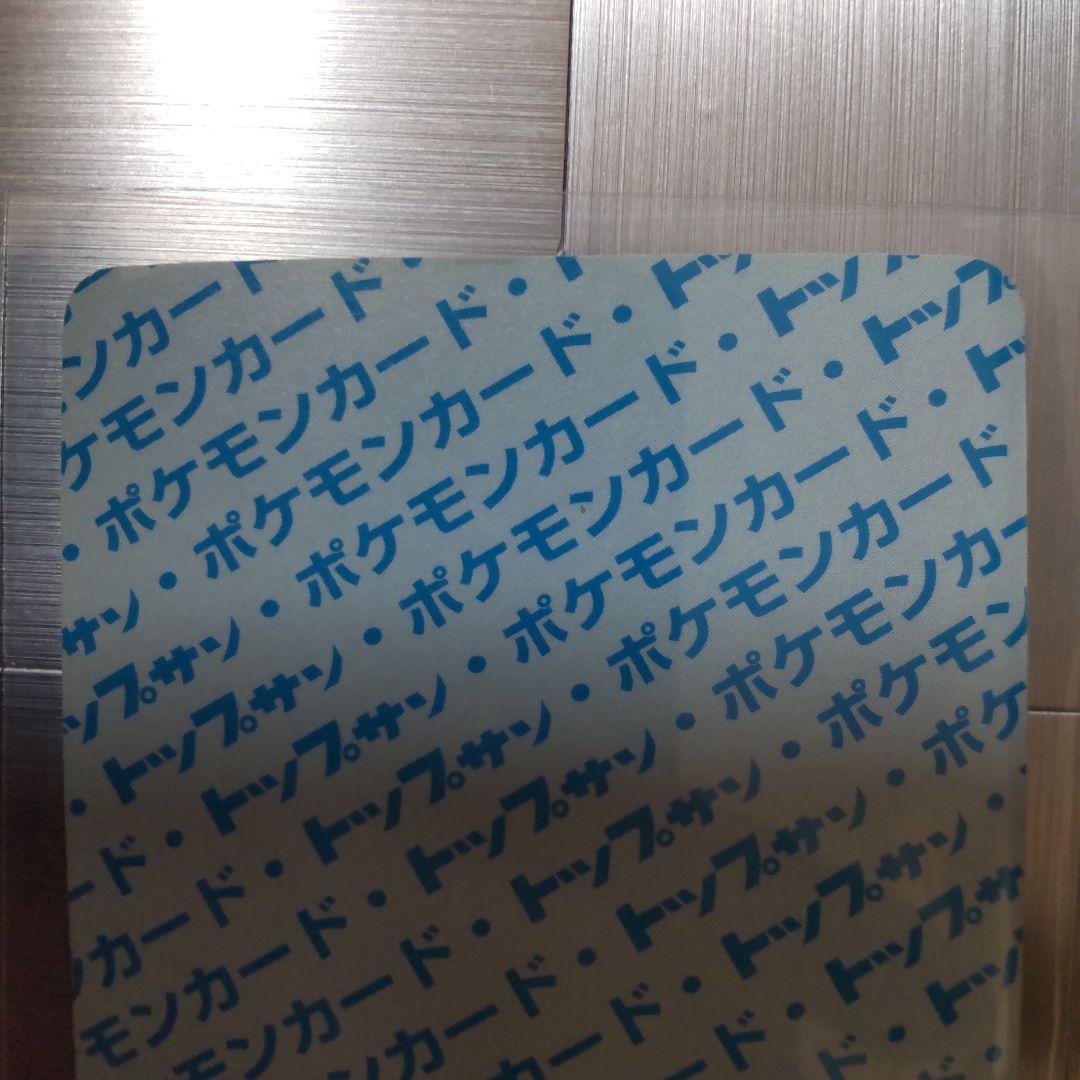 ンカード
ケモンカード・
・ポケモンカード・ト
サン・ポケモンカード・トッ
ップサン・ポケモンカード・トッ
・トップサン・ポケモンカード・トップ
ード・トップサン・ポケモンカード・トッ
ンカード・トップサン・ポケモンカード
モンカード・トップサン・ポケモンカー
モンカード・トップサン・ポケモン
モンカード・トップサン・ポケ
カード・トップサン・
ド・トップサ
ド・トッ